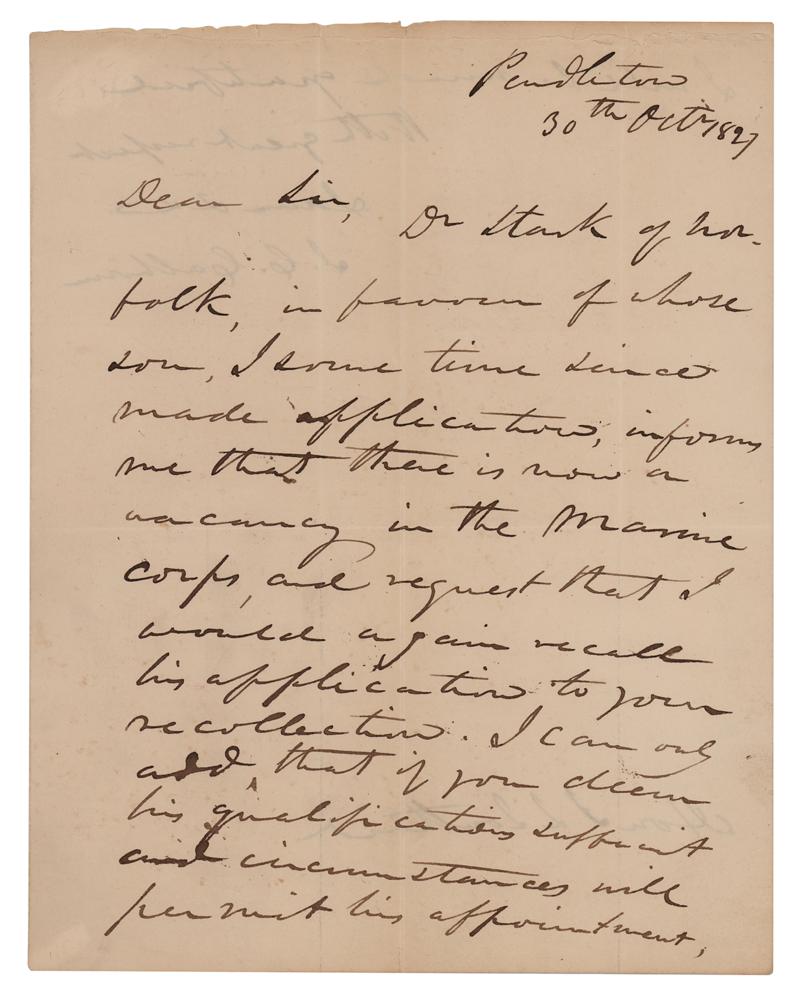 Pendleton
30th Octr 1827
Dear Sir,
Dr Stark of Nor-
folk, in favour of whose
son, I some time since
made application, informs
me that there is now a
vacancy in the Marine
corps, and request that I
would again recall
his application to your
recollection. I can only
add, that if you deem
his qualifications sufficient
and circumstances will
permit his appointment,